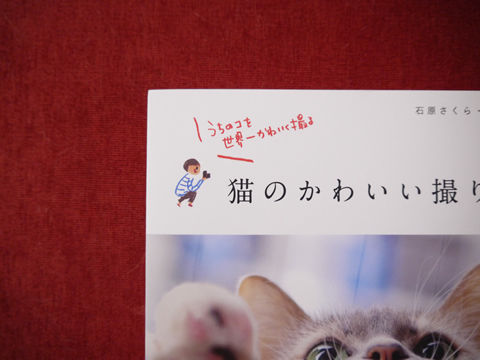 石原さくら
うちのコを
世界一かわいく撮る
猫のかわいい撮り